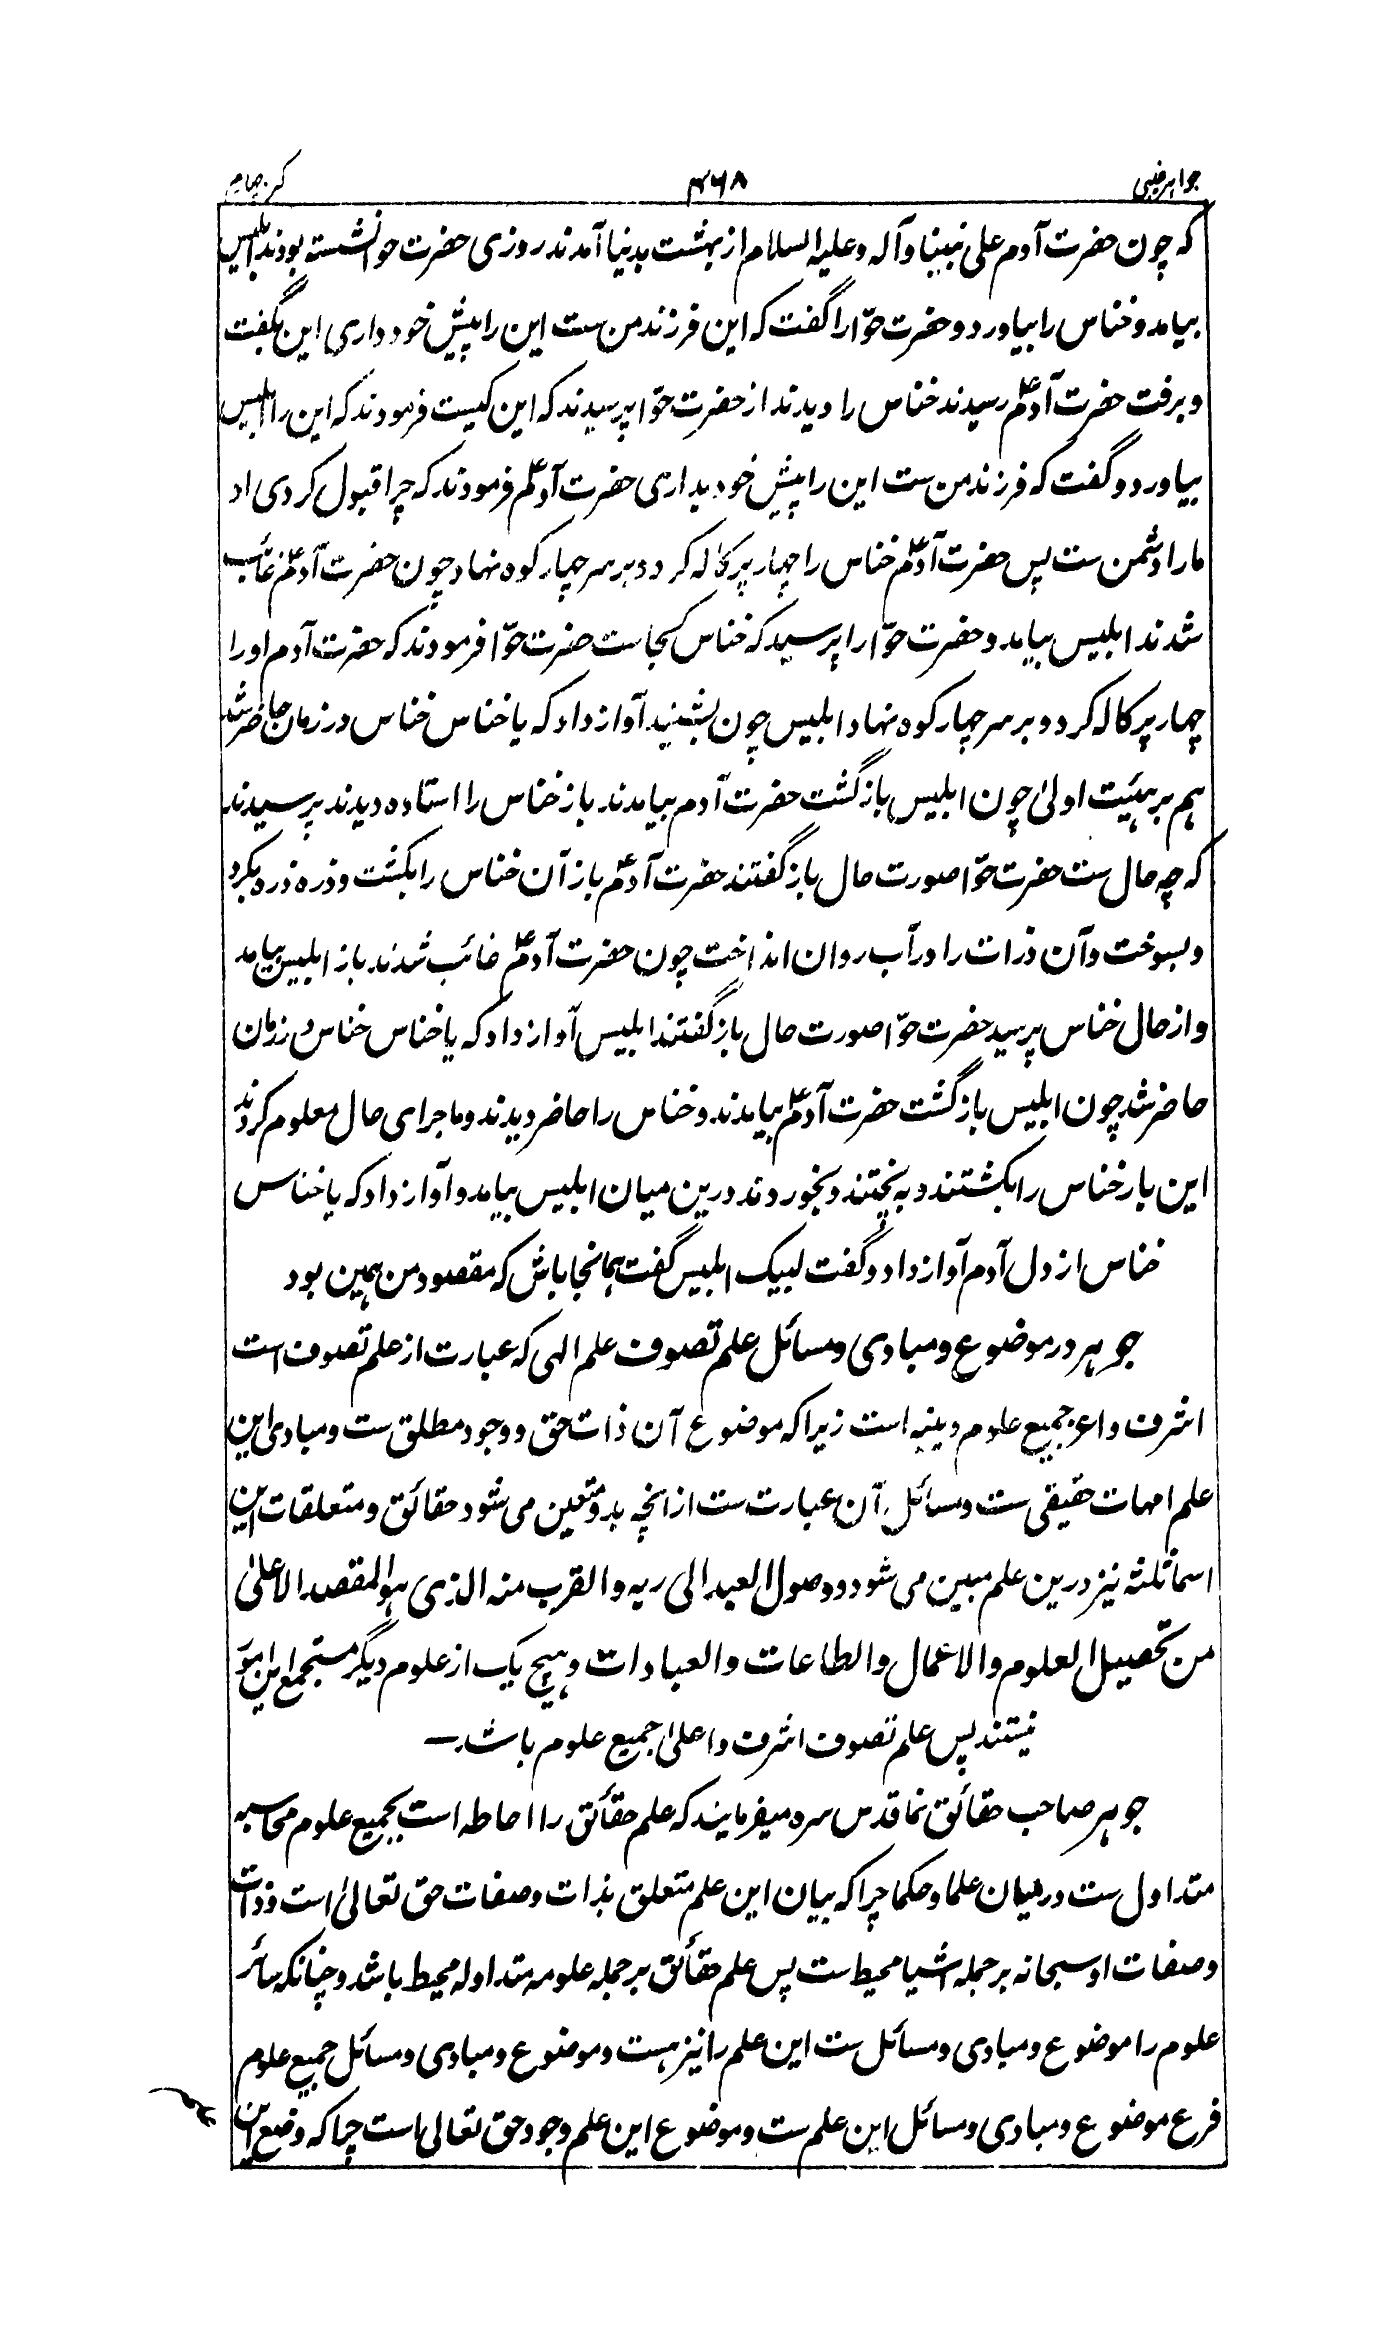 جواہر غیبی ۴۶۸ کنز چہارم
کہ چون حضرت آدم علی نبینا وآلہ وعلیہ السلام از بہشت بدنیا آمدند روزی حضرت حوا نشستہ بودند ابلیس
بیامد و خناس را بیاورد و حضرت حوّا را گفت کہ این فرزند من ست این را پیش خود داری این بگفت
و برفت حضرت آدمؑ رسیدند خناس را دیدند از حضرت حوّا پرسیدند کہ این کیست فرمودند کہ این را ابلیس
بیاورد و گفت کہ فرزند من ست این را پیش خود بداری حضرت آدمؑ فرمودند کہ چرا قبول کردی او
مارا دشمن ست پس حضرت آدمؑ خناس را چہار پرکالہ کرد و بر سر چہار کوہ نہاد چون حضرت آدمؑ غائب
شدند ابلیس بیامد و حضرت حوّا را پرسید کہ خناس کجاست حضرت حوّا فرمودند کہ حضرت آدم او را
چہار پرکالہ کرد و بر سر چہار کوہ نہاد ابلیس چون بشنید آواز داد کہ یا خناس خناس در زمان حاضر شد
ہم بر ہیئت اولیٰ چون ابلیس باز گشت حضرت آدم بیامدند باز خناس را استادہ دیدند پرسیدند
کہ چہ حال ست حضرت حوّا صورت حال باز گفتند حضرت آدمؑ باز آن خناس را بکشت و ذرہ ذرہ بکرد
و بسوخت و آن ذرات را در آب روان انداخت چون حضرت آدمؑ غائب شدند باز ابلیس بیامد
و از حال خناس پرسید حضرت حوّا صورت حال باز گفتند ابلیس آواز داد کہ یا خناس خناس در زمان
حاضر شد چون ابلیس باز گشت حضرت آدمؑ بیامدند و خناس را حاضر دیدند و ماجرای حال معلوم کردند
این بار خناس را بکشتند و بہ پختند و بخوردند درین میان ابلیس بیامد و آواز داد کہ یا خناس
خناس از دل آدم آواز داد و گفت لبیک ابلیس گفت ہمانجا باش کہ مقصود من ہمین بود
جوہر در موضوع و مبادی و مسائل علم تصوف علم الہی کہ عبارت از علم تصوف است
اشرف و اعز جمیع علوم دینیہ است زیرا کہ موضوع آن ذات حق و وجود مطلق ست و مبادی این
علم امہات حقیقی ست و مسائل آن عبارت ست از انچہ بدو متعین می شود حقائق و متعلقات این
اسما ثلثہ نیز درین علم مبین می شود و وصول العبد الی ربہ والقرب منہ الذی ہو المقصد الاعلیٰ
من تحصیل العلوم والاعمال والطاعات والعبادات و ہیچ یک از علوم دیگر مستجمع این امور
نیستند پس علم تصوف اشرف و اعلیٰ جمیع علوم باشد۔
جوہر صاحب حقائق نما قدس سرہ میفرمایند کہ علم حقائق را احاطہ است بجمیع علوم محاسبہ
متداول ست درمیان علما و حکما چرا کہ بیان این علم متعلق بذات و صفات حق تعالیٰ است و ذات
و صفات او سبحانہ بر جملہ اشیا محیط ست پس علم حقائق بر جملہ علومہ متداولہ محیط باشد و چنانکہ سائر
علوم را موضوع و مبادی و مسائل ست این علم را نیز ہست و موضوع و مبادی و مسائل جمیع علوم
فرع موضوع و مبادی و مسائل این علم ست و موضوع این علم وجود حق تعالی است چرا کہ وضع این